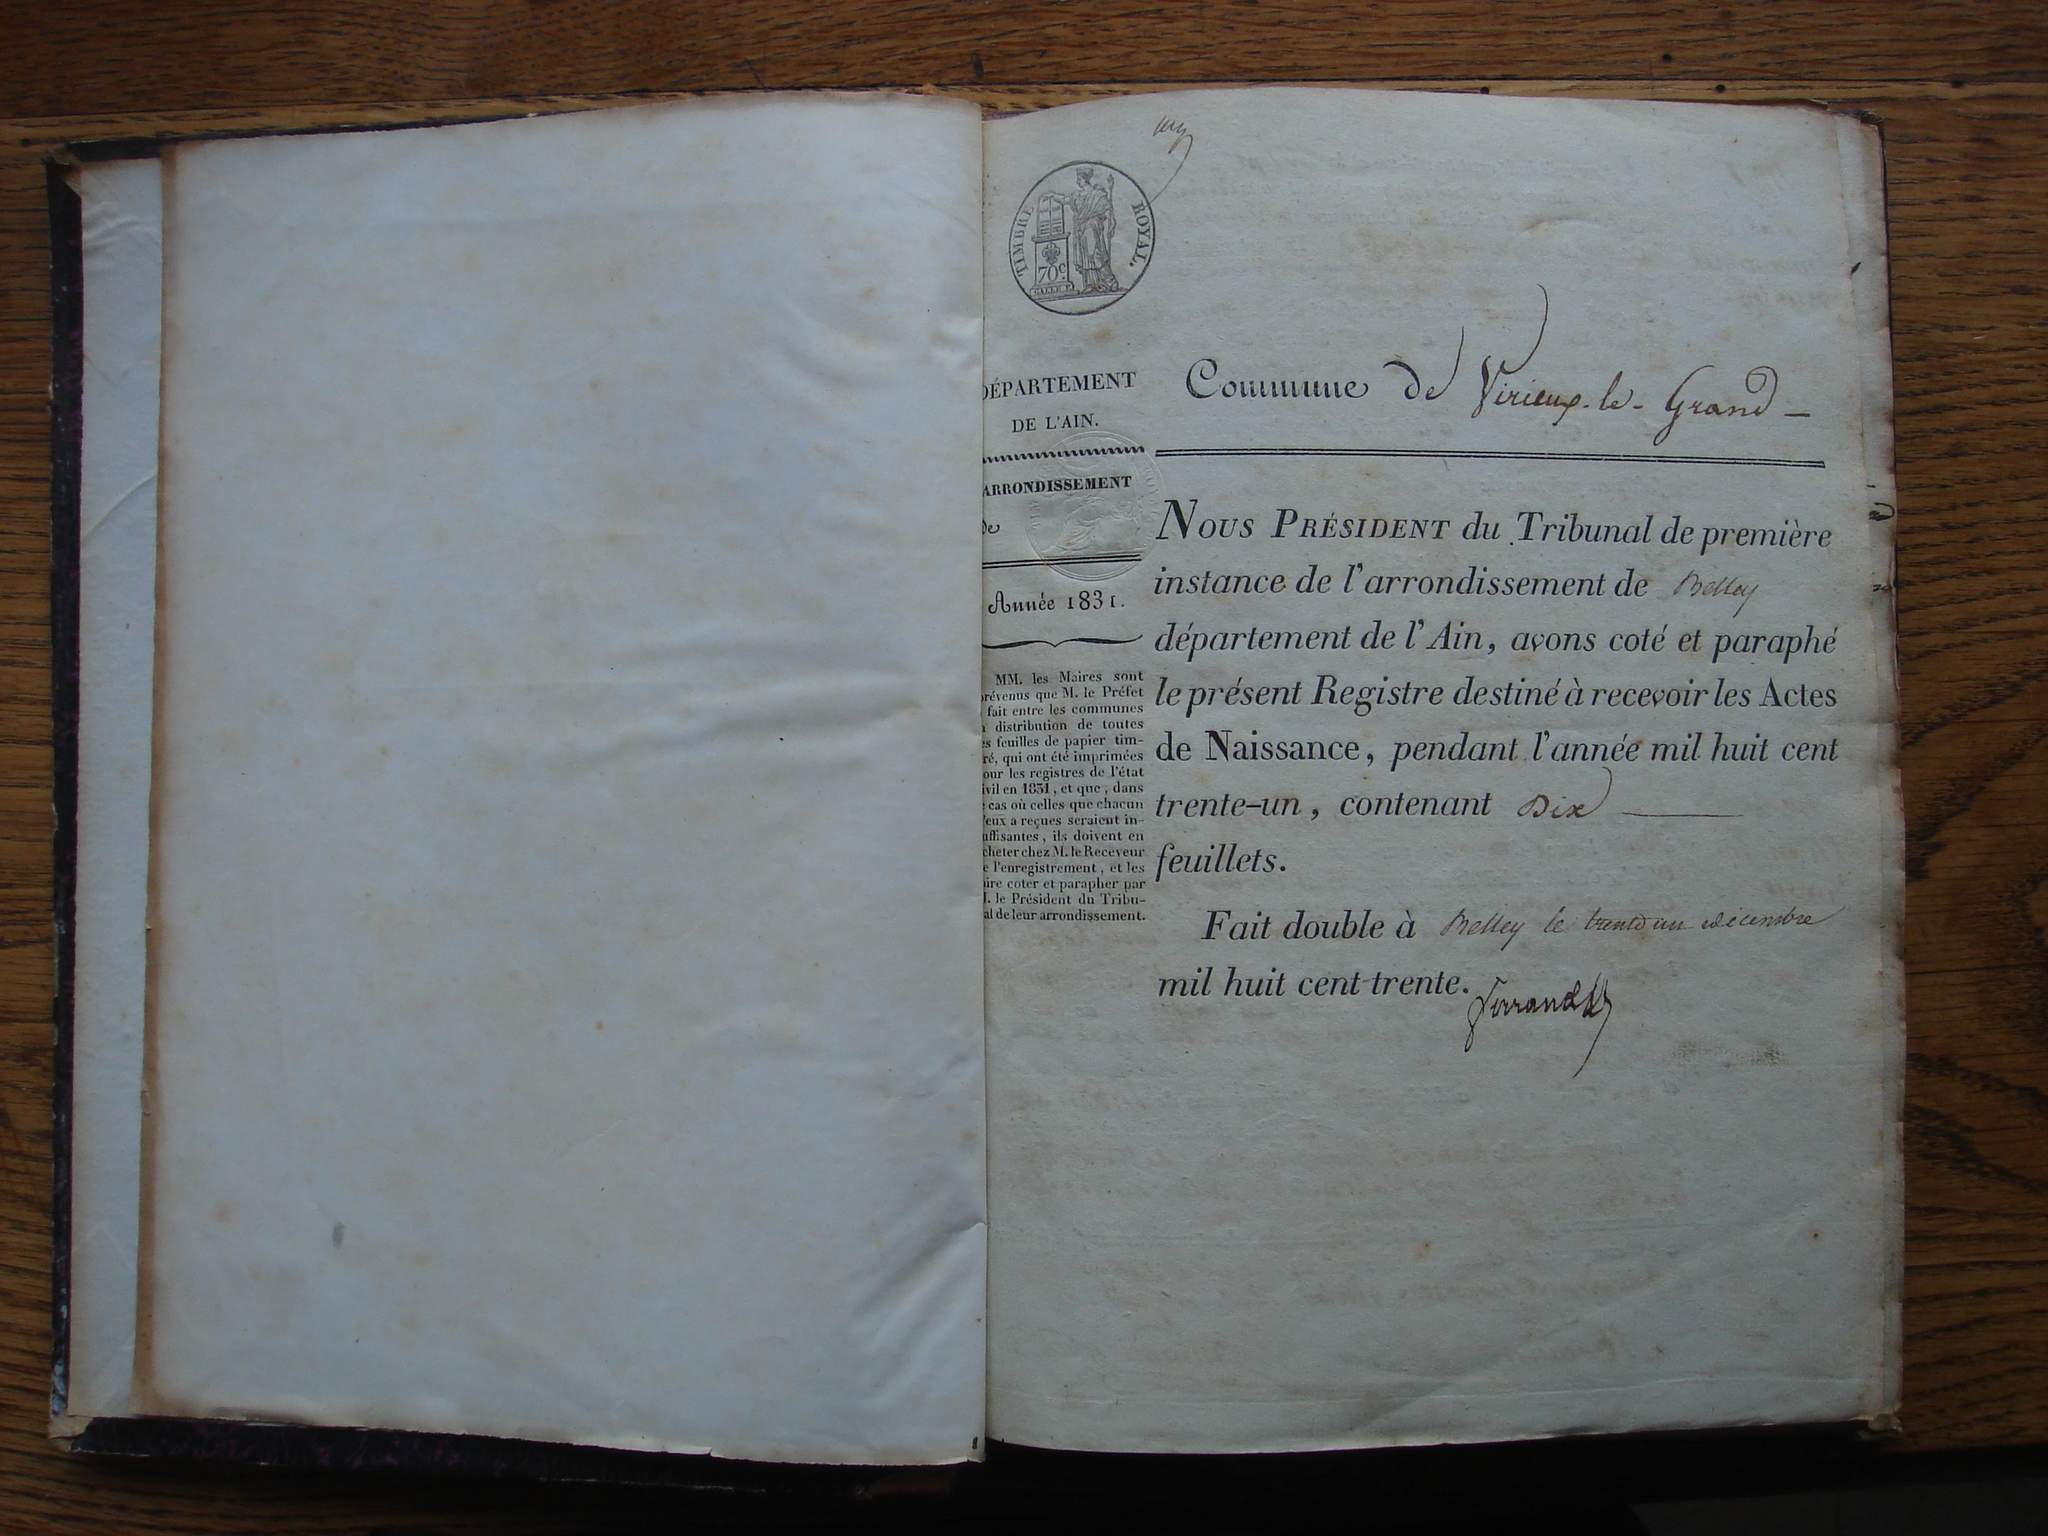 TIMBRE ROYAL.
70c.
DÉPARTEMENT
DE L'AIN.
ARRONDISSEMENT
de
Année 1831.
MM. les Maires sont
prévenus que M. le Préfet
fait entre les communes
distribution de toutes
es feuilles de papier tim-
ré, qui ont été imprimées
our les registres de l'état
ivil en 1831, et que, dans
cas où celles que chacun
d'eux a reçues seraient in-
uffisantes, ils doivent en
cheter chez M. le Receveur
e l'enregistrement, et les
ire coter et parapher par
M. le Président du Tribu-
al de leur arrondissement.
Commune de Virieux-le-Grand -
NOUS PRÉSIDENT du Tribunal de première
instance de l'arrondissement de Belley
département de l'Ain, avons coté et paraphé
le présent Registre destiné à recevoir les Actes
de Naissance, pendant l'année mil huit cent
trente-un, contenant Dix
feuillets.
Fait double à Belley le trente un décembre
mil huit cent trente.